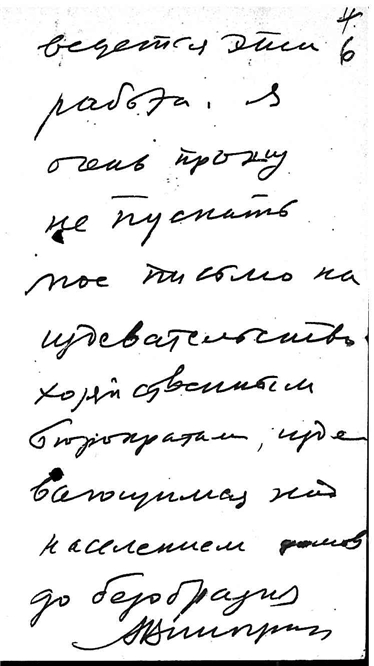 4
6
ведется эта
работа. Я
очень прошу
не пускать
мое письмо на
издевательство
хозяйственным
бюрократам, изде
вающимся над
населением домов
до безобразия